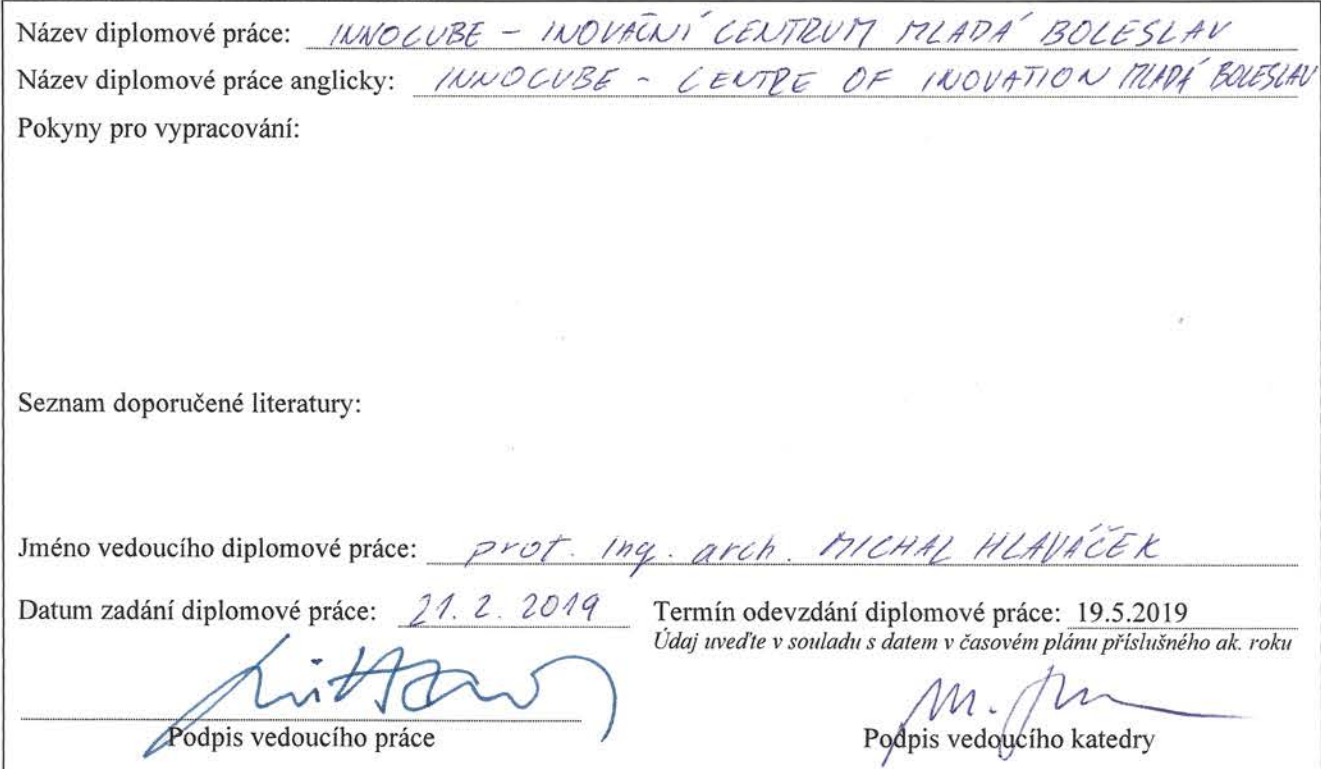 Název diplomové práce: INNOCUBE - INOVAČNÍ CENTRUM MLADÁ BOLESLAV
Název diplomové práce anglicky: INNOCUBE - CENTRE OF INOVATION MLADÁ BOLESLAV
Pokyny pro vypracování:
Seznam doporučené literatury:
Jméno vedoucího diplomové práce: prof. Ing. arch. MICHAL HLAVÁČEK
Datum zadání diplomové práce: 21. 2. 2019 Termín odevzdání diplomové práce: 19.5.2019
Údaj uveďte v souladu s datem v časovém plánu příslušného ak. roku
Podpis vedoucího práce Podpis vedoucího katedry